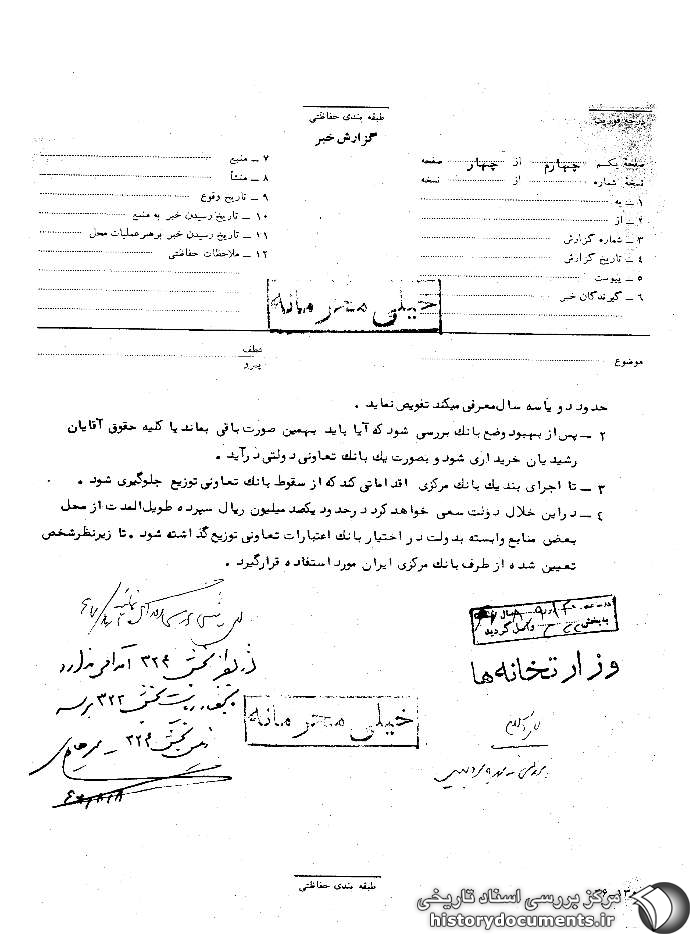 طبقه بندی حفاظتی
گزارش خبر
درجه فوریت
صفحهٔ یکم چهارم از چهار صفحه
نسخهٔ شماره از نسخه
۱ ــ به
۲ ــ از
۳ ــ شماره گزارش
۴ ــ تاریخ گزارش
۵ ــ پیوست
۶ ــ گیرندگان خبر
۷ ــ منبع
۸ ــ منشأ
۹ ــ تاریخ وقوع
۱۰ ــ تاریخ رسیدن خبر به منبع
۱۱ ــ تاریخ رسیدن خبر برهبر عملیات محل
۱۲ ــ ملاحظات حفاظتی
خیلی محرمانه
موضوع
عطف
پیرو
حدود دو یا سه سال معرفی میکند تفویض نماید .
۲ ــ پس از بهبود وضع بانك بررسی شود که آیا باید بهمین صورت باقی بماند یا کلیه حقوق آقایان
رشیدیان خریداری شود و بصورت یك بانك تعاونی دولتی درآید .
۳ ــ تا اجرای بند یك بانك مرکزی اقداماتی کند که از سقوط بانك تعاونی توزیع جلوگیری شود .
۴ ــ در این خلال دولت سعی خواهد کرد در حدود یکصد میلیون ریال سپرده طویل‌المدت از محل
بعضی منابع وابسته بدولت در اختیار بانك اعتبارات تعاونی توزیع گذاشته شود . تا زیر نظر شخص
تعیین شده از طرف بانك مرکزی ایران مورد استفاده قرار گیرد .
واصل گردید
وزارتخانه‌ها
بخش ۳۲۴
بخش ۳۲۲
بخش ۳۲۴
خیلی محرمانه
طبقه بندی حفاظتی
مرکز بررسی اسناد تاریخی
historydocuments.ir